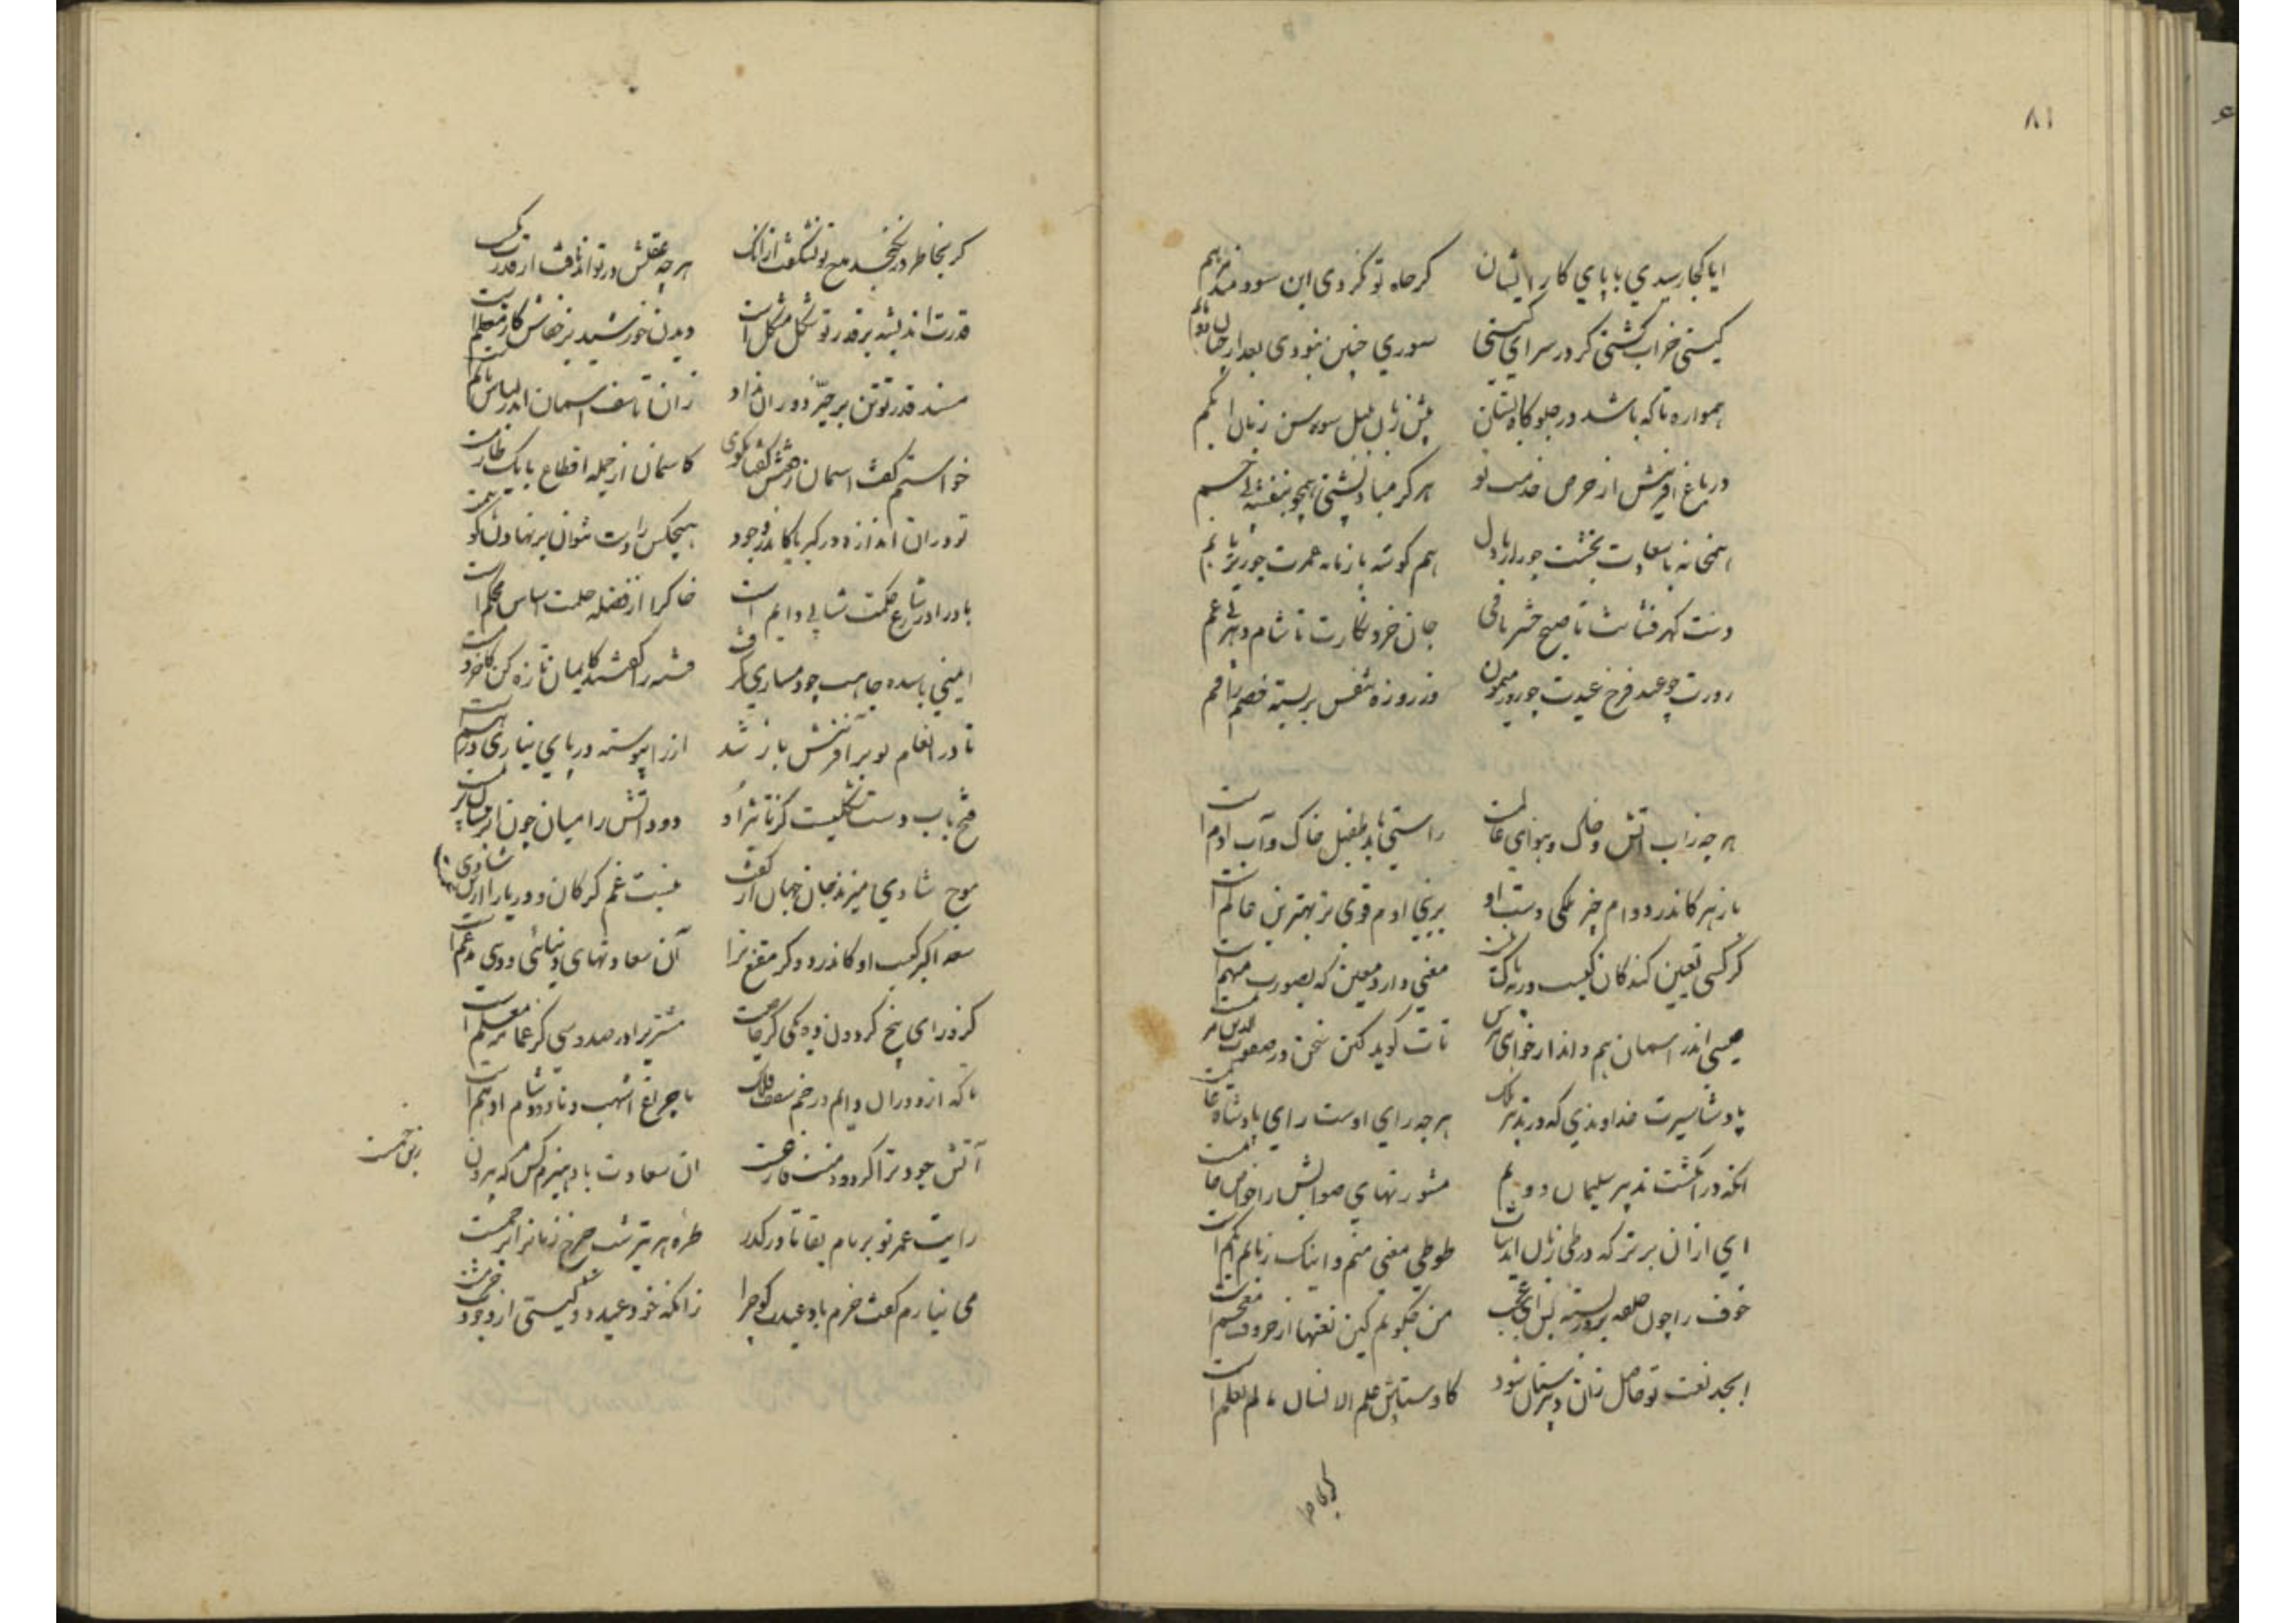 ٨١
ایا کجا رسیدی با پای کار ایشان کر جاه تو نکردی این سوو
کیتی خراب کشتی کر در سرای کیتی سوری چنین نبودی بعد از
همواره تا که باشد در جلوکاه بستان پیش زبان بلبل سوسن زبان ابکم
در باغ افرینش از حرص خدمت تو هر کز مباد پشتی همچو بنفشه بی خم
همخانه با سعادت بختت چو راز با دل هم کوشه با زمانه عمرت چو زیر با بم
دست کهر فشانت تا صبح حشر باقی جان خرد نکارت تا شام دهر بی غم
روزت چو عید فرخ عیدت چو روز میمون وز روزه تنفس بر بسته خصم را فم
هر چه زاب و اتش و خاک و هوای عالمست راستی باید طفیل خاک و آب ادمست
باز هر کاندر دوام خیر ملکی دست او بر بنی ادم قوی تر بهترین عالمست
کر کسی تعیین کند کان کیست ورنه باک نیست معنی دارد معین کر بصورت مبهمست
عیسی اندر اسمان هم داند ار خواهی بپرس تات کوید کین سخن در صفوت الدین مریمست
پادشا سیرت خداوندی که در تدبیر ملک هر چه رای اوست رای پادشاه عالمست
انکه در انکشت تدبیر سلیمان دوم مشورتهای صوابش را خواص خاتمست
ای از ان برتر که در طی زبان اید ثنات طوطی معنی منم و اینک زبانم ابکمست
خوف را چون حلقه بر در بسته بس ای عجب من چکویم کین نعتها از حروف معجمست
ابجد نعت تو حاصل زان دبیرستان شود کاوستادش علم الانسان ما لم یعلمست
کر بخاطر
کر بخاطر در نکنجد مدح تو نشکفت از انک هر چه عقلش در تواند یافت از قدرت کمست
قدرت اندیشه بر قدر تو شکل مشکلست دیدن خورشید بر خفاش کار معظمست
مسند قدر تو تن بر حیز دوران نداد زان تاسف اسمان اندر لباس ماتمست
خواستم کفت اسمان رفعتش کفتا مکوی کاسمان از جمله اقطاع ما یک طارمست
تو دران اندازه در کبریا کاندر وجود هیچکس را دست نتوان بر نهادن کو همست
باد را در شارع حکمت شتابی دایم است خاک را از فضله حلمت اساس محکم است
ایمنی با سده جاهت چو دمسازی کرفت فتنه را کفتند کایمان تازه کن کاخر دمست
تا در انعام تو بر آفرینش باز شد از را پیوسته در پای نیازی در همست
فتح باب دست شکلیست کز تاثیر او دود اتش را میان چون ابر نیسان پر نمست
موج شادی میزند جان جهان از کفت نیست غم کر کان و دریا را ازین شادی غمست
سعد اکبر کیست او کاندر دو کز مقنع ترا آن سعادتهای دنیائی و دینی مدغمست
کز ورای پنج کردون زو یکی کز خاصیت مشتری را در صد و سی کز عمامه معلمست
تا که از دوران دایم در خم سقف فلک با چراغ اشهب دنباله دود ادهمست
آتش جود ترا کز دود منت فارغست ان سعادت باد هیزم کس که بیرون
زین خمست
رایت عمر تو بر بام بقا تا در کذر طره هر تیره شب صرخ زمانرا پرچمست
می نیارم کفت خرم باد عیدت کو چرا زانکه خود عید دو کیتی از وجودت خرمست